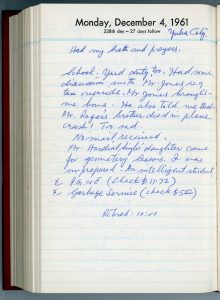 Monday, December 4, 1961
338th day — 27 days follow
Yuba City
Had my bath and prayers.
School. Yard duty, too. Had some
discussion with Mr. Jones reg.
tax override. Mr. Jones brought
me home. He also told me that
Mr. Rogers brother died in plane
crash! Too sad.
No mail received.
Mr. Hardial Singh's daughter came
for geometry lessons. I was
unprepared. An intelligent student
E P.G. & E. (check $11.72)
E Garbage Service (check $5.00)
Retired: 10:00